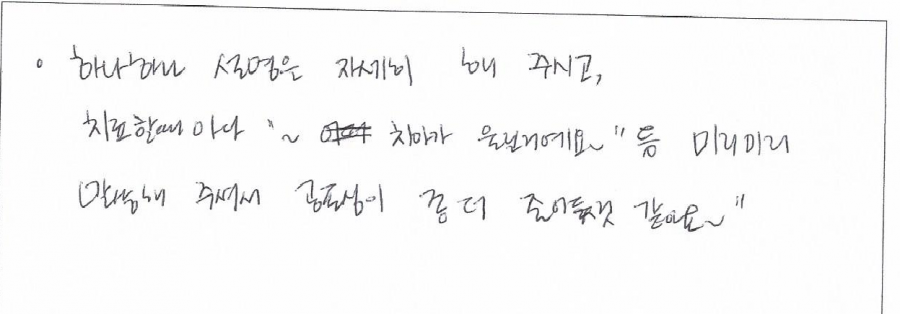 • 하나하나 설명은 자세히 해 주시고,
치료할때마다 "~ 치아가 울릴거에요~" 등 미리미리
말씀해 주셔서 공포심이 좀 더 줄어들것 같아요~"